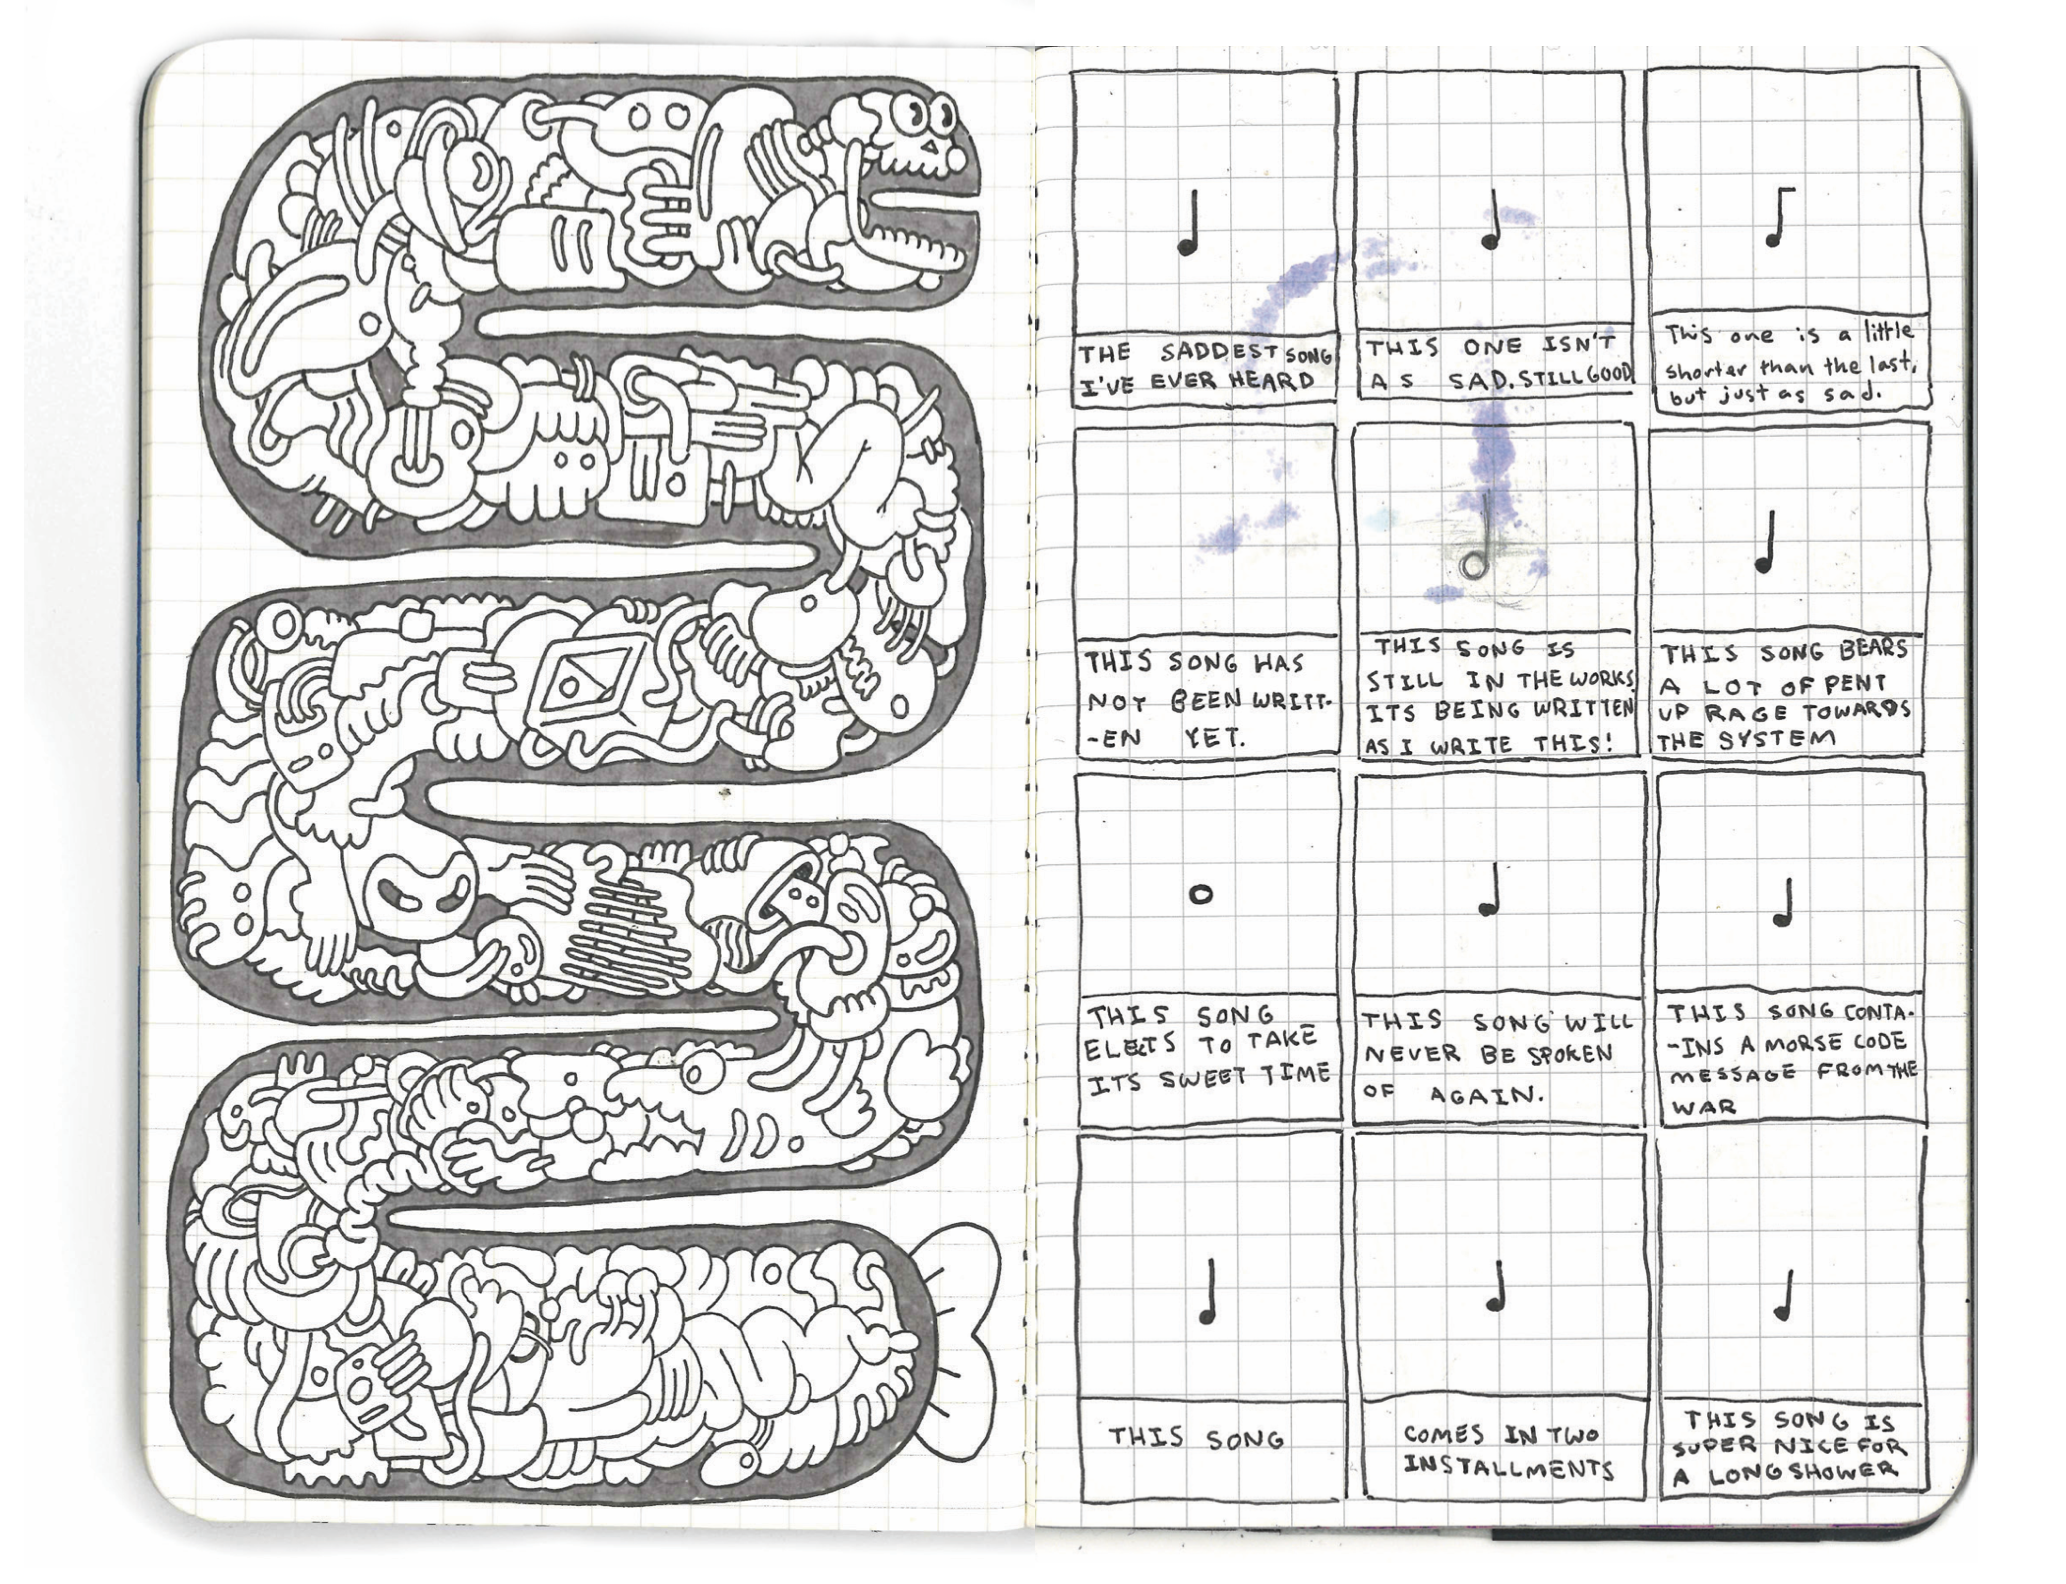 THE SADDEST SONG
I'VE EVER HEARD
THIS ONE ISN'T
AS SAD. STILL GOOD
This one is a little
shorter than the last,
but just as sad.
THIS SONG HAS
NOT BEEN WRITT-
-EN YET.
THIS SONG IS
STILL IN THE WORKS
ITS BEING WRITTEN
AS I WRITE THIS!
THIS SONG BEARS
A LOT OF PENT
UP RAGE TOWARDS
THE SYSTEM
THIS SONG
ELECTS TO TAKE
ITS SWEET TIME
THIS SONG WILL
NEVER BE SPOKEN
OF AGAIN.
THIS SONG CONTA-
-INS A MORSE CODE
MESSAGE FROM THE
WAR
THIS SONG
COMES IN TWO
INSTALLMENTS
THIS SONG IS
SUPER NICE FOR
A LONG SHOWER